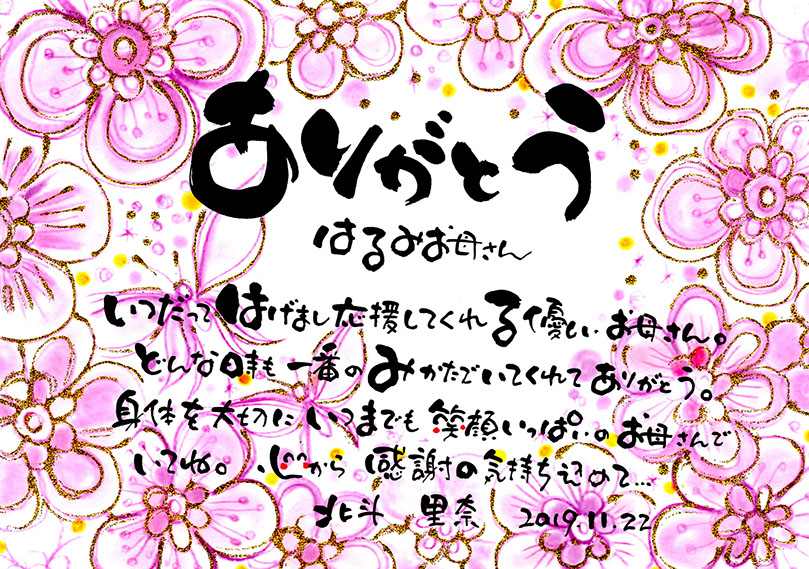 ありがとう
はるみお母さん
いつだってはげまし応援してくれる優しいお母さん。
どんな時も一番のみかたでいてくれてありがとう。
身体を大切にいつまでも笑顔いっぱいのお母さんで
いてね。心から感謝の気持ち込めて...
北斗 里奈 2019.11.22